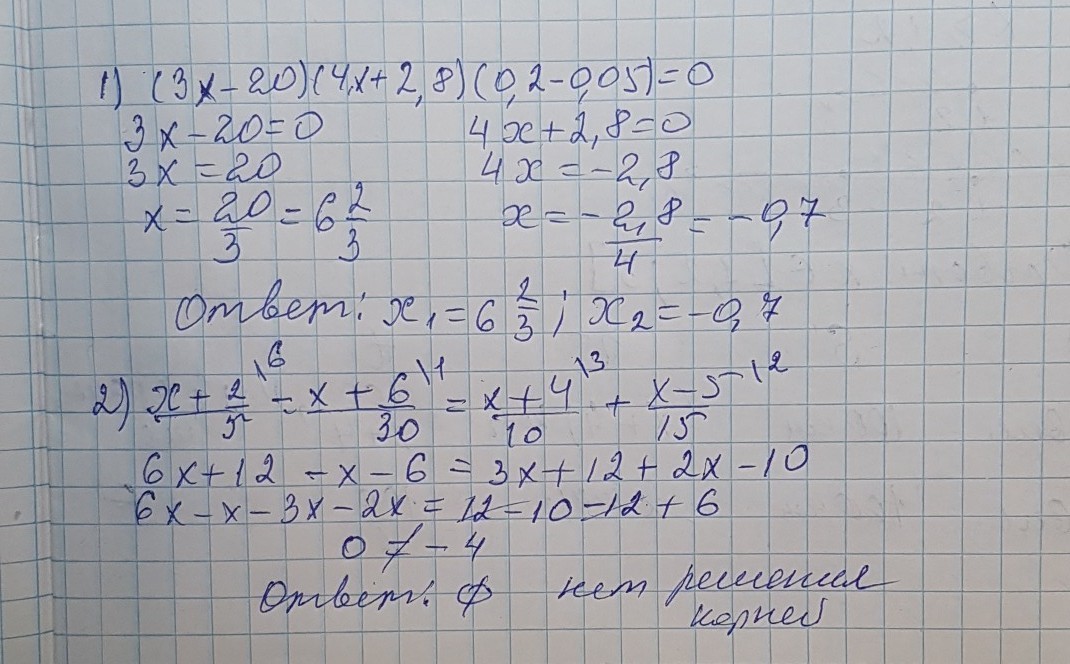 1) (3x-20)(4x+2,8)(0,2-0,05)=0
3x-20=0 4x+2,8=0
3x=20 4x=-2,8
x=20/3=6 2/3 x=-2,8/4=-0,7
Ответ: x₁=6 2/3; x₂=-0,7
2) x+2/5\6 - x+6/30\1 = x+4/10\3 + x-5/15\2
6x+12-x-6=3x+12+2x-10
6x-x-3x-2x=12-10-12+6
0≠-4
Ответ: ϕ нет решения
корней